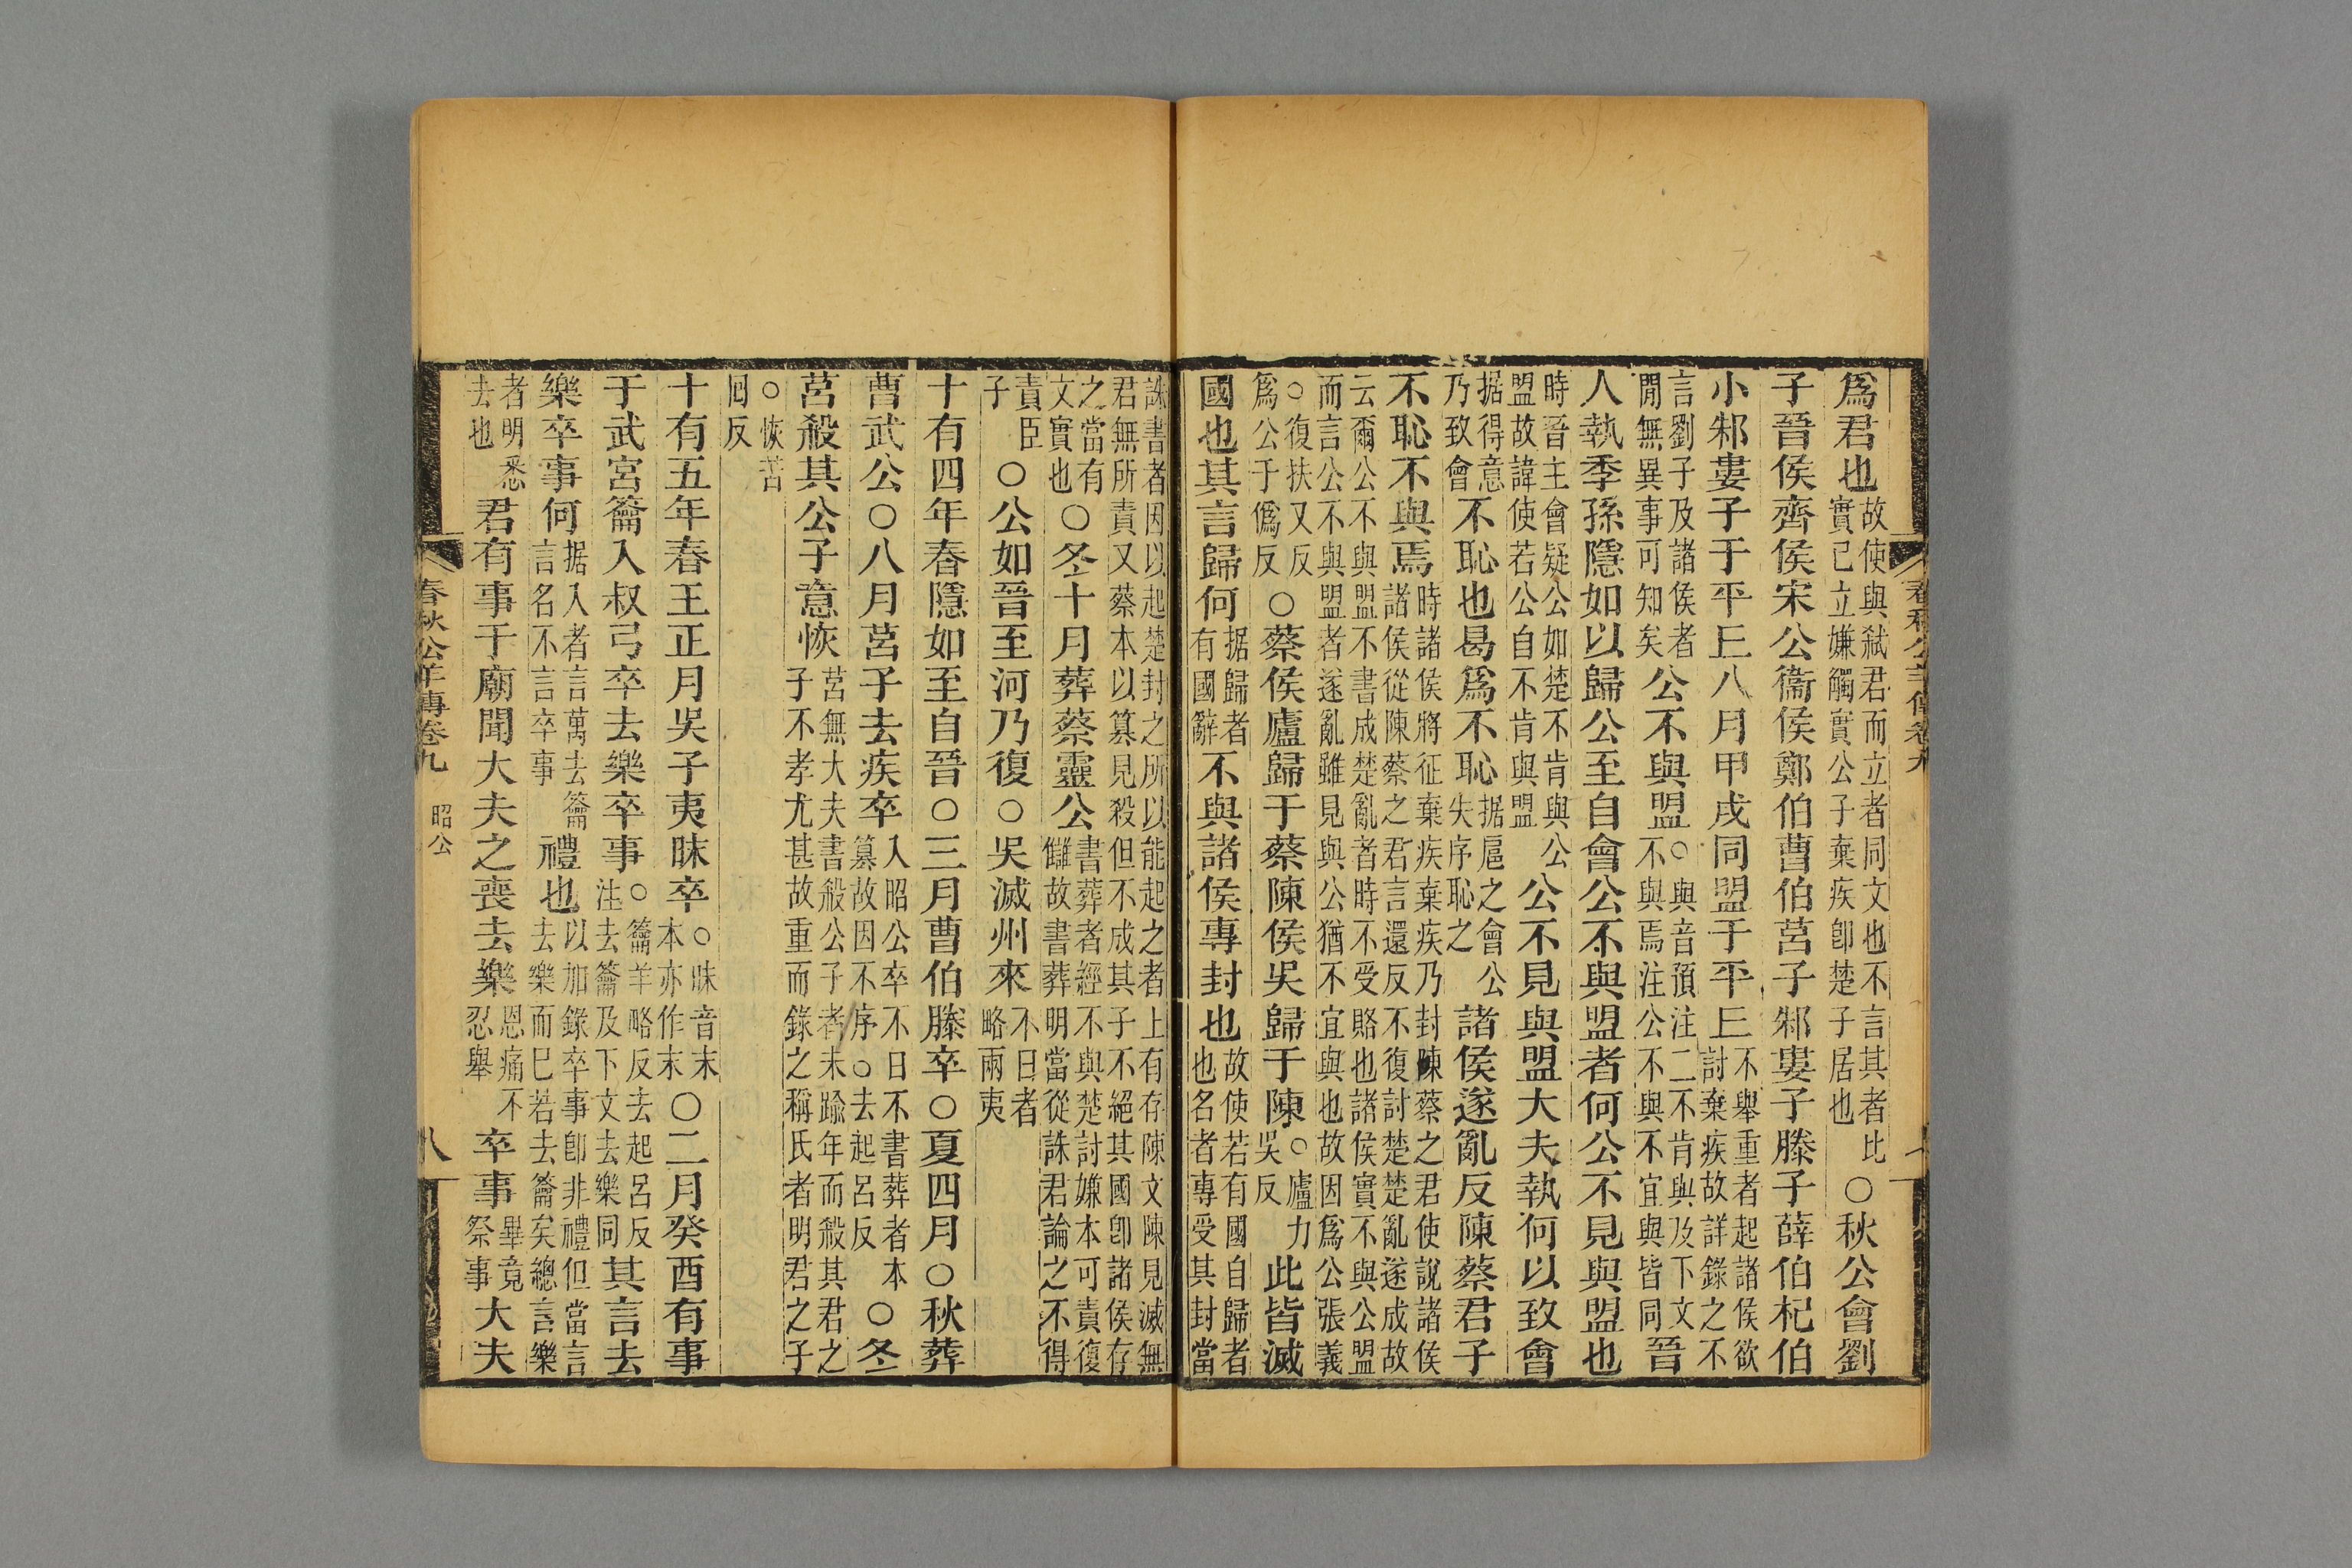 爲君也故使與弑君而立者同文也不言其者比實已立嫌觸實公子棄疾卽楚子居也○秋公會劉
子晉侯齊侯宋公衞侯鄭伯曹伯莒子邾婁子滕子薛伯杞伯
小邾婁子于平丘八月甲戌同盟于平丘不舉重者起諸侯欲討棄疾故詳錄之不
言劉子及諸侯者閒無異事可知矣公不與盟○與音預注二不肯與及下文不與焉注公不與不宜與皆同晉
人執季孫隱如以歸公至自會公不與盟者何公不見與盟也
時晉主會疑公如楚不肯與公盟故諱使若公自不肯與盟公不見與盟大夫執何以致會
据得意乃致會不恥也曷爲不恥据扈之會公失序恥之諸侯遂亂反陳蔡君子
不恥不與焉時諸侯將征棄疾棄疾乃封陳蔡之君使說諸侯諸侯從陳蔡之君言還反不復討楚楚亂遂成故
云爾公不與盟不書成楚亂者時不受賂也諸侯實不與公盟而言公不與盟者遂亂雖見與公猶不宜與也故因爲公張義
○復扶又反爲公于僞反○蔡侯廬歸于蔡陳侯吳歸于陳○廬力吳反此皆滅
國也其言歸何据歸者有國辭不與諸侯專封也故使若有國自歸者也名者專受其封當
誅書者因以起楚封之所以能起之者上有存陳文陳見滅無君無所責又蔡本以篡見殺但不成其子不絕其國卽諸侯存
之當有文實也○冬十月葬蔡靈公書葬者經不與楚討嫌本可責復讎故書葬明當從誅君論之不得
責臣子○公如晉至河乃復○吳滅州來不日者略兩夷
十有四年春隱如至自晉○三月曹伯滕卒○夏四月○秋葬
曹武公○八月莒子去疾卒入昭公卒不日不書葬者本篡故因不序○去起呂反○冬
莒殺其公子意恢莒無大夫書殺公子者未踰年而殺其君之子不孝尤甚故重而錄之稱氏者明君之子
○恢苦囘反
十有五年春王正月吳子夷昧卒○昧音末本亦作末○二月癸酉有事
于武宮籥入叔弓卒去樂卒事○籥羊略反去起呂反注去籥及下文去樂同其言去
樂卒事何据入者言萬去籥言名不言卒事禮也以加錄卒事卽非禮但當言去樂而已若去籥矣總言樂
者明悉去也君有事于廟聞大夫之喪去樂恩痛不忍舉卒事畢竟祭事大夫
春秋公羊傳卷九 昭公 八